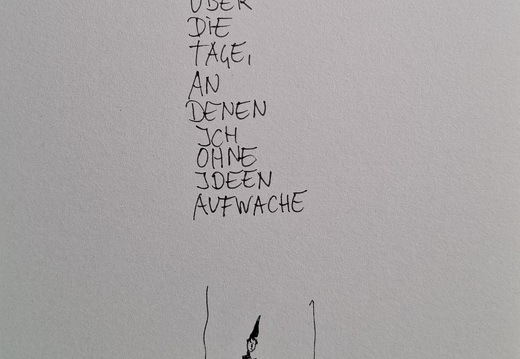 ÜBER
DIE
TAGE,
AN
DENEN
ICH
OHNE
IDEEN
AUFWACHE